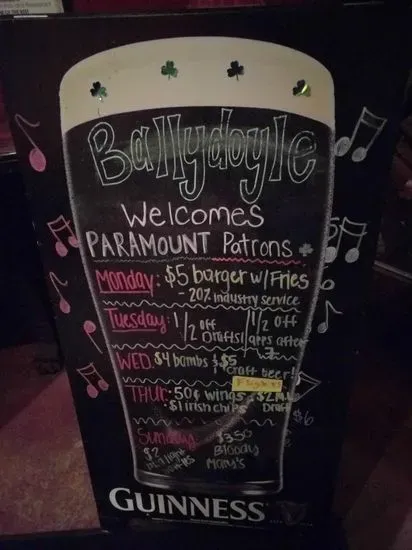 Ballydoyle
Welcomes
PARAMOUNT Patrons
Monday: $5 burger w/ Fries
- 20% industry service
Tuesday: 1/2 off Drafts / 1/2 off apps after
WED: $4 bombs & $5 craft beer!
Flights
THUR: 50¢ wings $2 Draft
$1 irish chips
$6
Sunday $3.50
$2 Bloody
Mary's
GUINNESS